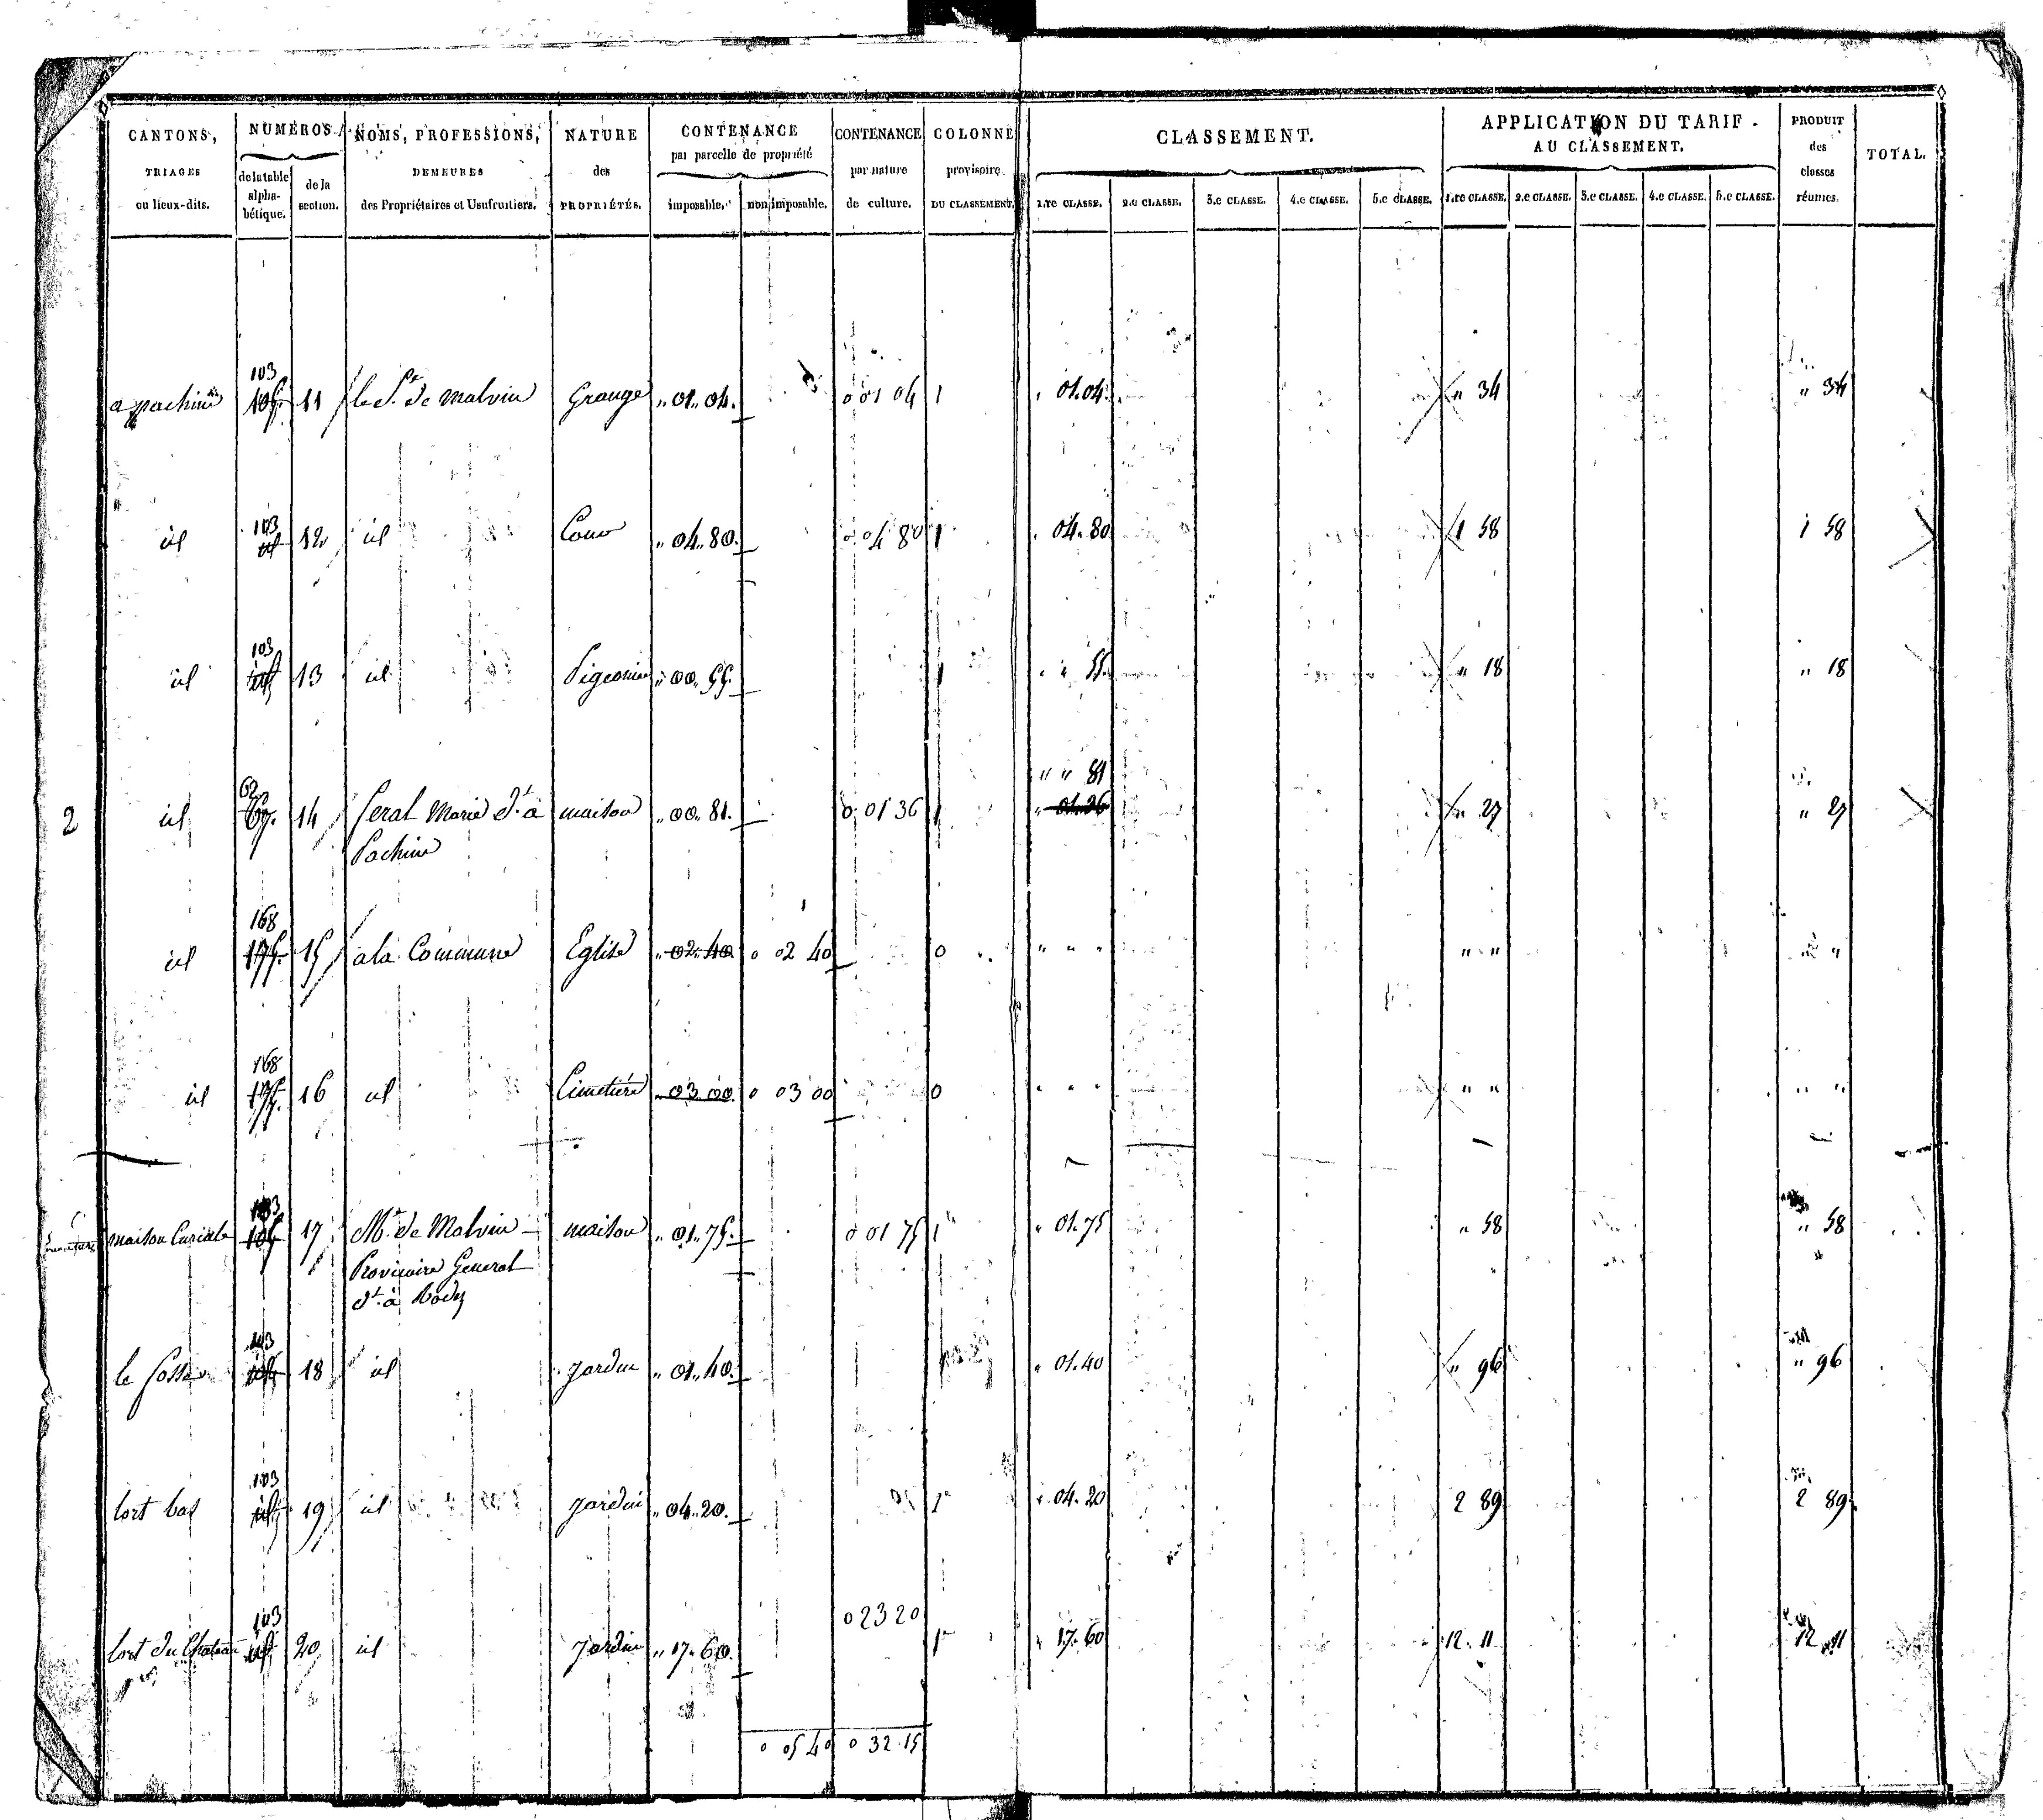 CANTONS, TRIAGES ou lieux-dits.
NUMÉROS de la table alphabétique. de la section.
NOMS, PROFESSIONS, DEMEURES des Propriétaires et Usufruitiers.
NATURE des PROPRIÉTÉS.
CONTENANCE par parcelle de propriété imposable. non imposable.
CONTENANCE par nature de culture.
COLONNE provisoire DU CLASSEMENT.
CLASSEMENT.
1.re CLASSE. 2.e CLASSE. 3.e CLASSE. 4.e CLASSE. 5.e CLASSE.
APPLICATION DU TARIF AU CLASSEMENT.
1.re CLASSE. 2.e CLASSE. 3.e CLASSE. 4.e CLASSE. 5.e CLASSE.
PRODUIT des classes réunies.
TOTAL.
103
a pachins 11 le Sr. de Malvin Grange " 01 " 04. 0 01 04 1 " 01. 04. " 34 " 34
103
id id 12 id Cour " 04 " 80. 0 04 80 1 " 04. 80 1 58 1 58
103
id 13 id Pigeonier " 00 " 55. 1 " " 55. " 18 " 18
" " 81
62
2 id 67. 14 feral Marie dt. à maison " 00 " 81. 0 01 36 1 " 01. 36 " 27 " 27
Pachins
168
id 175. 15 a la Commune Eglise " 02. 40 0 02 40 0 " " " " " " "
168
id 175. 16 id Cimetière " 03. 00. 0 03 00 0 " " " " " " "
103
maison Curiale 17 Mr. de Malvin maison " 01 " 75. 0 01 75 1 " 01. 75 " 58 " 58
Provicaire General
dt. à Rodez
103
le 18 id Jardin " 01 " 40. " 01. 40 " 96 " 96
103
lort bas id 19 id Jardin " 04 " 20. 1 " 04. 20 2 89 2 89
0 23 20
103
lort du Chateau id 20 id Jardin " 17 " 60. 1 " 17. 60 12. 11 12 11
0 05 40 0 32 15